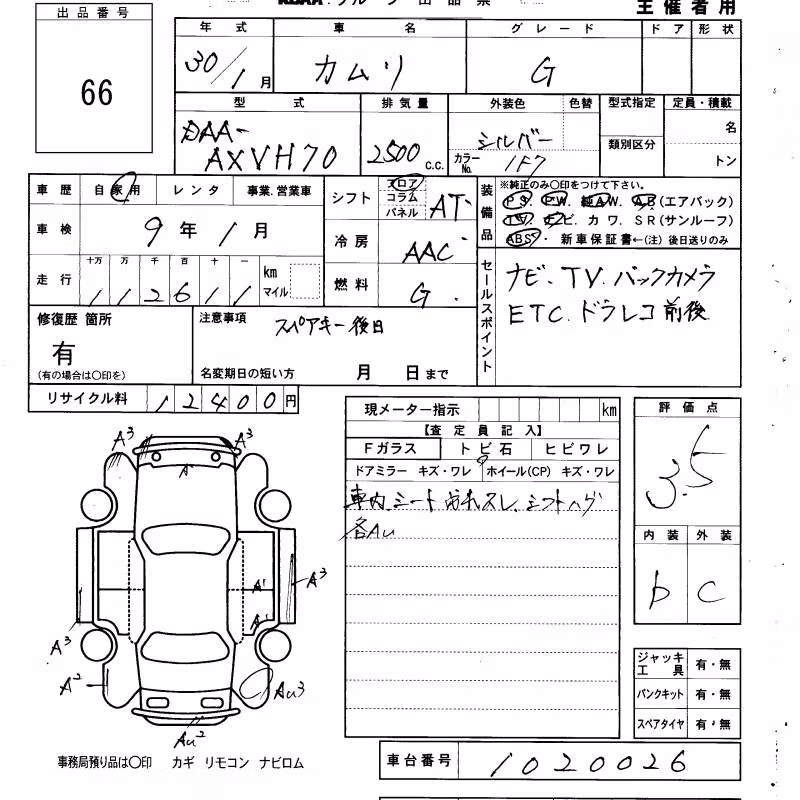 出品番号
66
主催者用
年式 車名 グレード ドア 形状
30/1月 カムリ G
型式 排気量 外装色 色替 型式指定 定員・積載
DAA-AXVH70 2500 c.c. シルバー
カラーNo. 1F7
類別区分
名
トン
車歴 自家用 レンタ 事業.営業車
車検 9年1月
走行 十万 万 千 百 十 一
112611 km マイル
シフト フロア コラム パネル AT
冷房 AAC
燃料 G
装備品
※純正のみ〇印をつけて下さい。
PS. PW. 純AW. AB(エアバック)
TV. ナビ. カワ. SR(サンルーフ)
ABS. 新車保証書←(注)後日送りのみ
セールスポイント
ナビ. TV. バックカメラ
ETC. ドラレコ前後
修復歴 箇所
有
(有の場合は〇印を)
注意事項 スペアキー後日
名変期日の短い方 月 日まで
リサイクル料 12400円
現メーター指示 km
【査定員記入】
Fガラス トビ石 ヒビワレ
ドアミラー キズ・ワレ ホイール(CP) キズ・ワレ
車内.シート
各Au
評価点
3.5
内装 外装
b C
ジャッキ工具 有・無
パンクキット 有・無
スペアタイヤ 有・無
A3 A3
A1
A3
A1
A1
A3
A2
Au3
Au2
事務局預り品は〇印 カギ リモコン ナビロム
車台番号 1020026